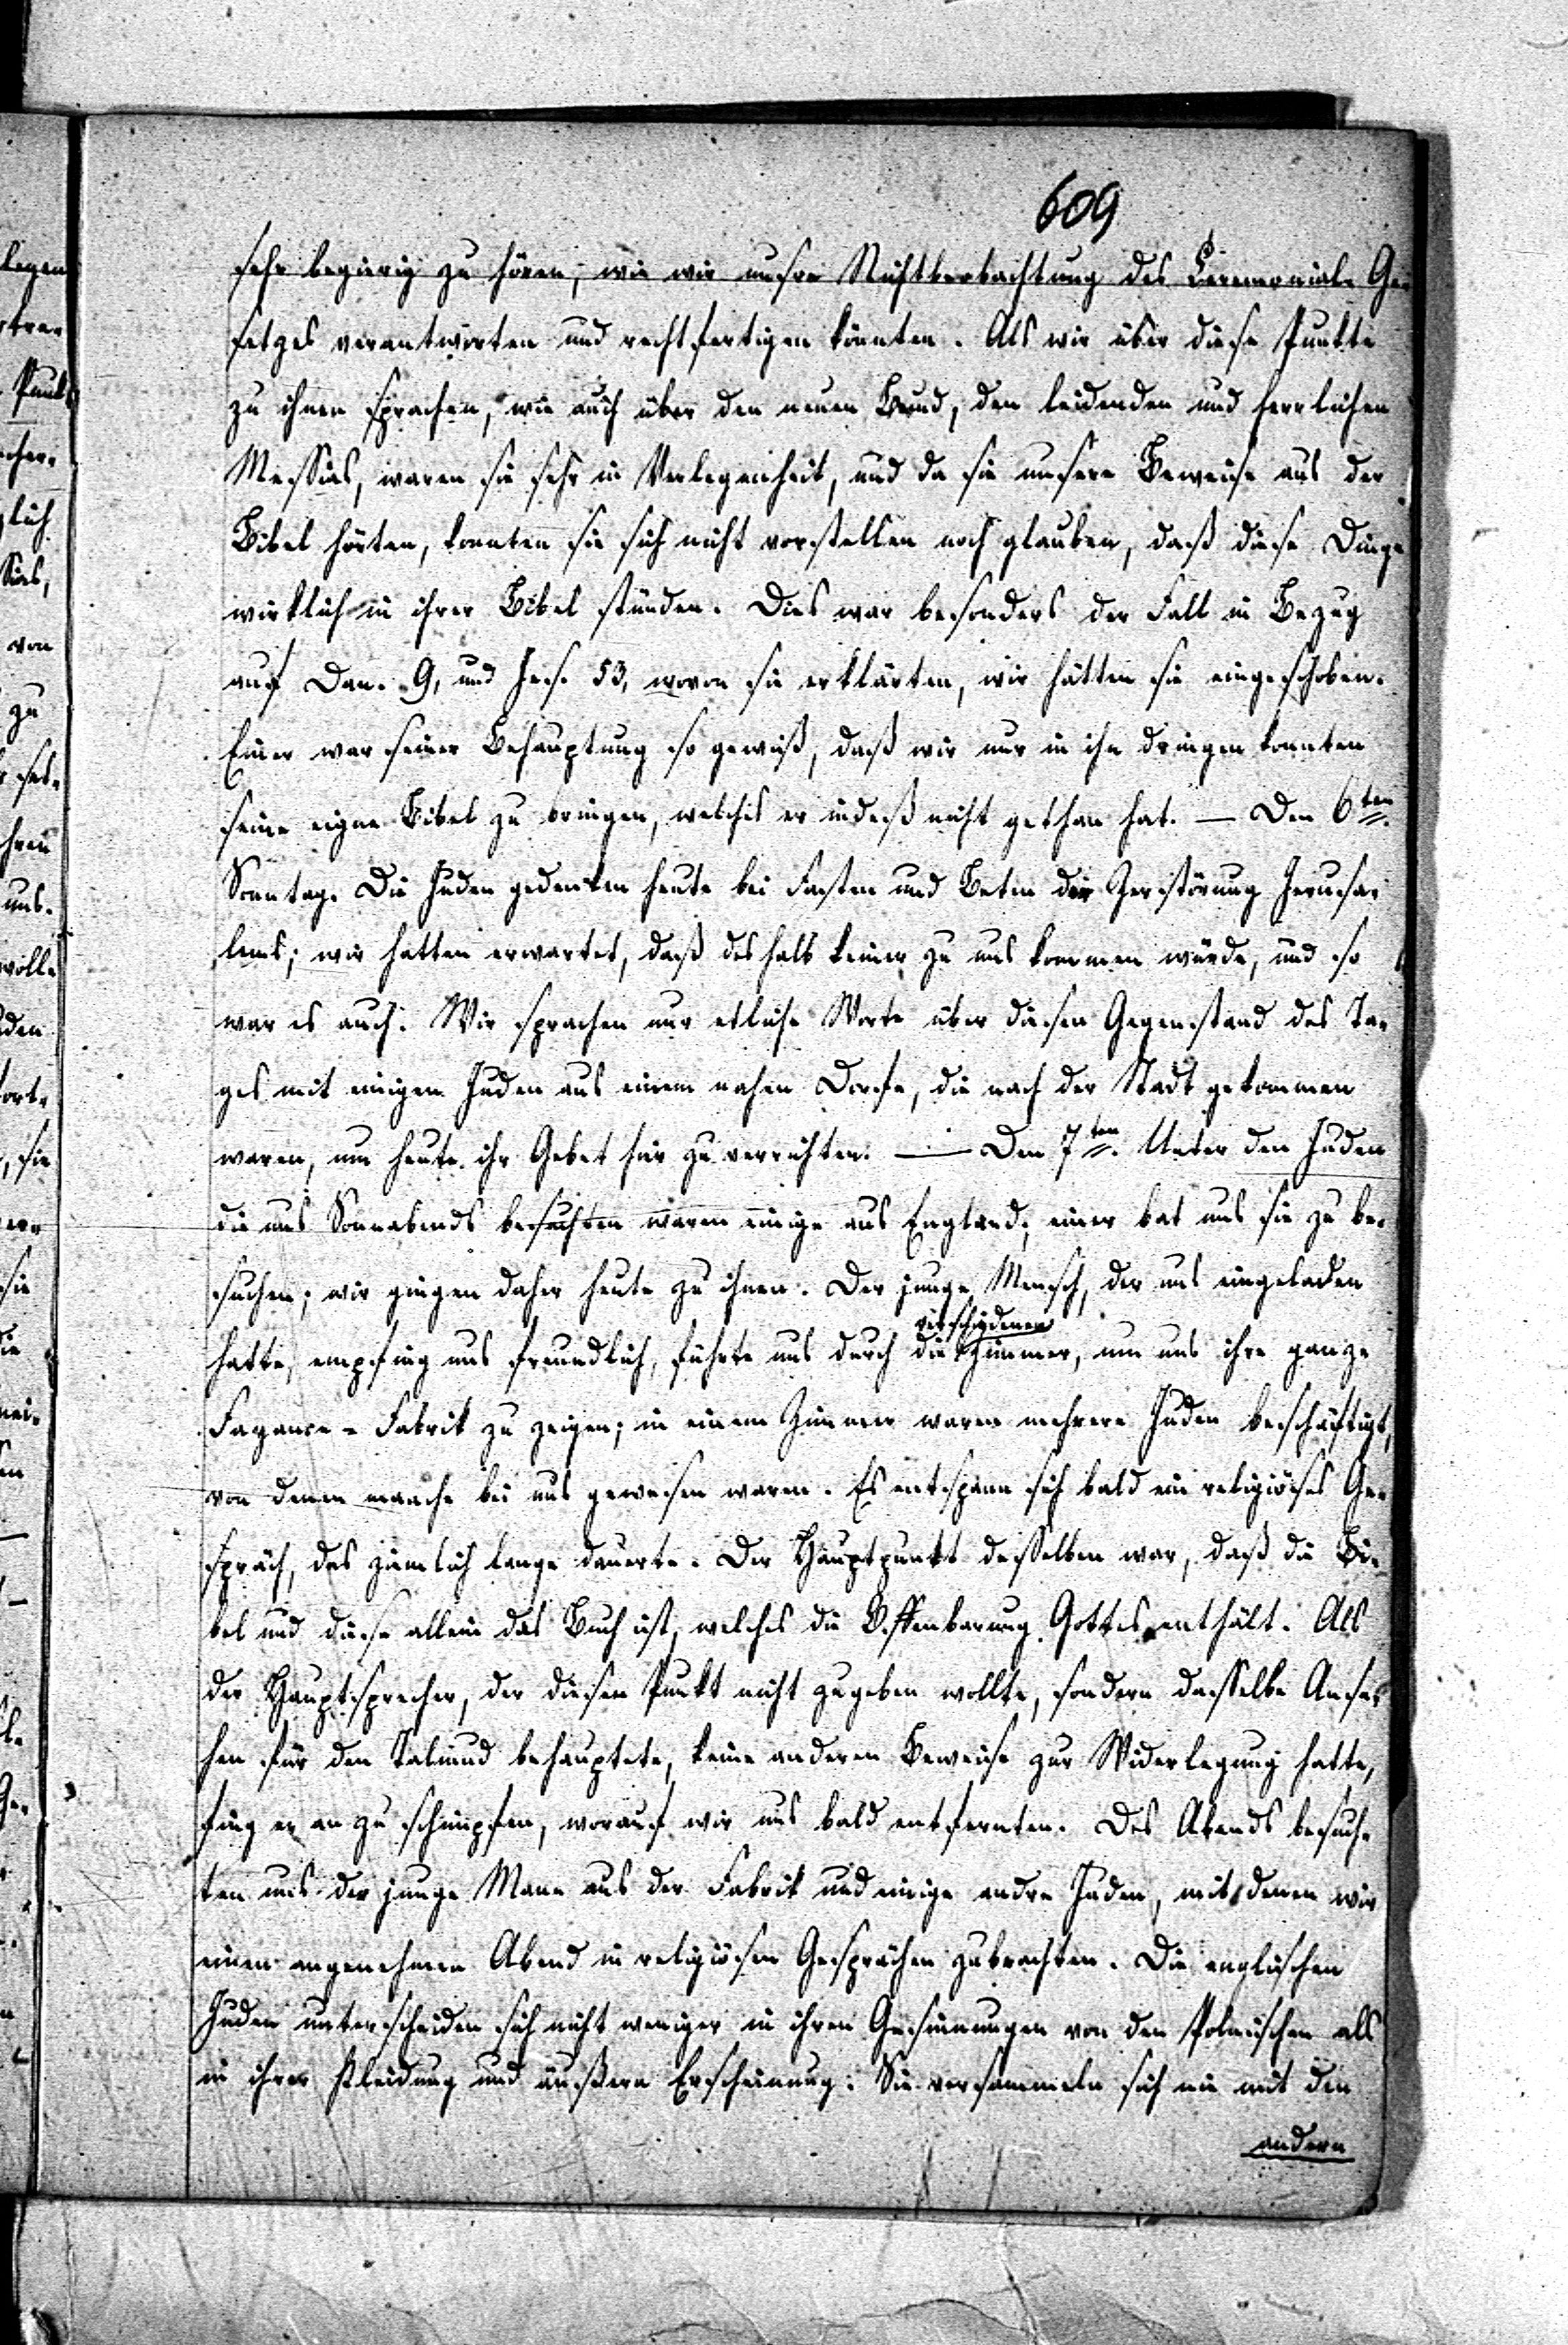 609
sehr begierig zu hören, wie wir unsre Nichtbeobachtung des Ceremonial-Ge-
setzes verantworten und rechtfertigen könnten. Als wir über diese Punkte
zu ihnen sprachen, wie auch über den neuen Bund, den leidenden und herrlichen
Messias, waren sie sehr in Verlegenheit, und da sie unsere Beweise aus der
Bibel hörten, konnten sie sich nicht vorstellen noch glauben, daß diese Dinge
wirklich in ihrer Bibel stünden. Dies war besonders der Fall in Bezug
auf Dan. 9, und Jes. 53, wovon sie erklärten, wir hätten sie eingeschoben.
Einer war seiner Behauptung so gewiß, daß wir nur in ihn dringen konnten
seine eigne Bibel zu bringen, welches er indeß nicht gethan hat. — Den 6ten.
Sonntag. Die Juden gedenken heute bei Fasten und Beten der Zerstörung Jerusa-
lems; wir hatten erwartet, daß deshalb keiner zu uns kommen würde, und so
war es auch. Wir sprachen nur etliche Worte über diesen Gegenstand des Ta-
ges mit einigen Juden aus einem nahen Dorfe, die nach der Stadt gekommen
waren, um heute ihr Gebet hier zu verrichten. — Den 7ten. Unter den Juden
die uns Sonnabends besuchten waren einige aus England; einer bat uns sie zu be-
suchen; wir gingen daher heute zu ihnen. Der junge Mensch, der uns eingeladen
verschiedenen
hatte, empfing uns freundlich, führte uns durch die Zimmer, um uns ihre ganze
Fayance-Fabrik zu zeigen; in einem Zimmer waren mehrere Juden beschäftigt,
von denen manche bei uns gewesen waren. Es entspann sich bald ein religiöses Ge-
spräch, das ziemlich lange dauerte. Der Hauptpunkt desselben war, daß die Bi-
bel und diese allein das Buch ist, welches die Offenbarung Gottes enthält. Als
der Hauptsprecher, der diesen Punkt nicht zugeben wollte, sondern dasselbe Anse-
hen für den Talmud behauptete, keine anderen Beweise zur Widerlegung hatte,
fing er an zu schimpfen, worauf wir uns bald entfernten. Des Abends besuch-
ten uns der junge Mann aus der Fabrik und einige andre Juden, mit denen wir
einen angenehmen Abend in religiösen Gesprächen zubrachten. Die englischen
Juden unterscheiden sich nicht weniger in ihren Gesinnungen von den Polnischen als
in ihrer Kleidung und äußern Erscheinung. Sie versammeln sich nie mit den
andern